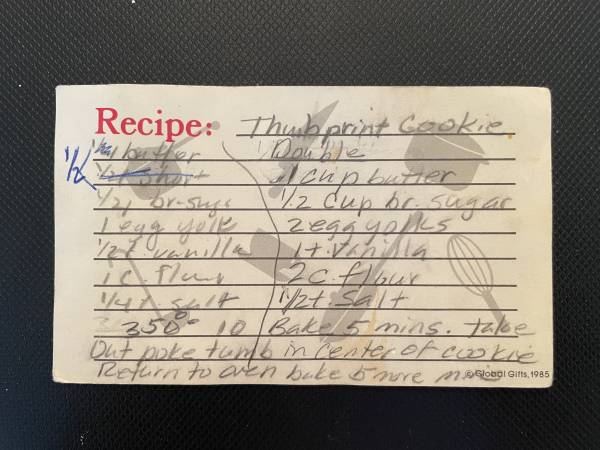 Recipe: Thumbprint Cookie
butter Double
1/2 short 1 cup butter
br-sug 1/2 cup br. sugar
1 egg yolk 2 egg yolks
1/2 t. vanilla 1 t vanilla
1 c. flour 2 c. flour
1/4 t. salt 1/2 t. salt
350° 10 Bake 5 mins. take
Out poke tumb in center of cookie
Return to oven bake 5 more mins
© Global Gifts, 1985